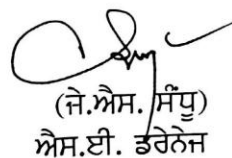 (ਜੇ.ਐਸ. ਸੰਧੂ)
ਐਸ.ਈ. ਡਰੇਨੇਜ